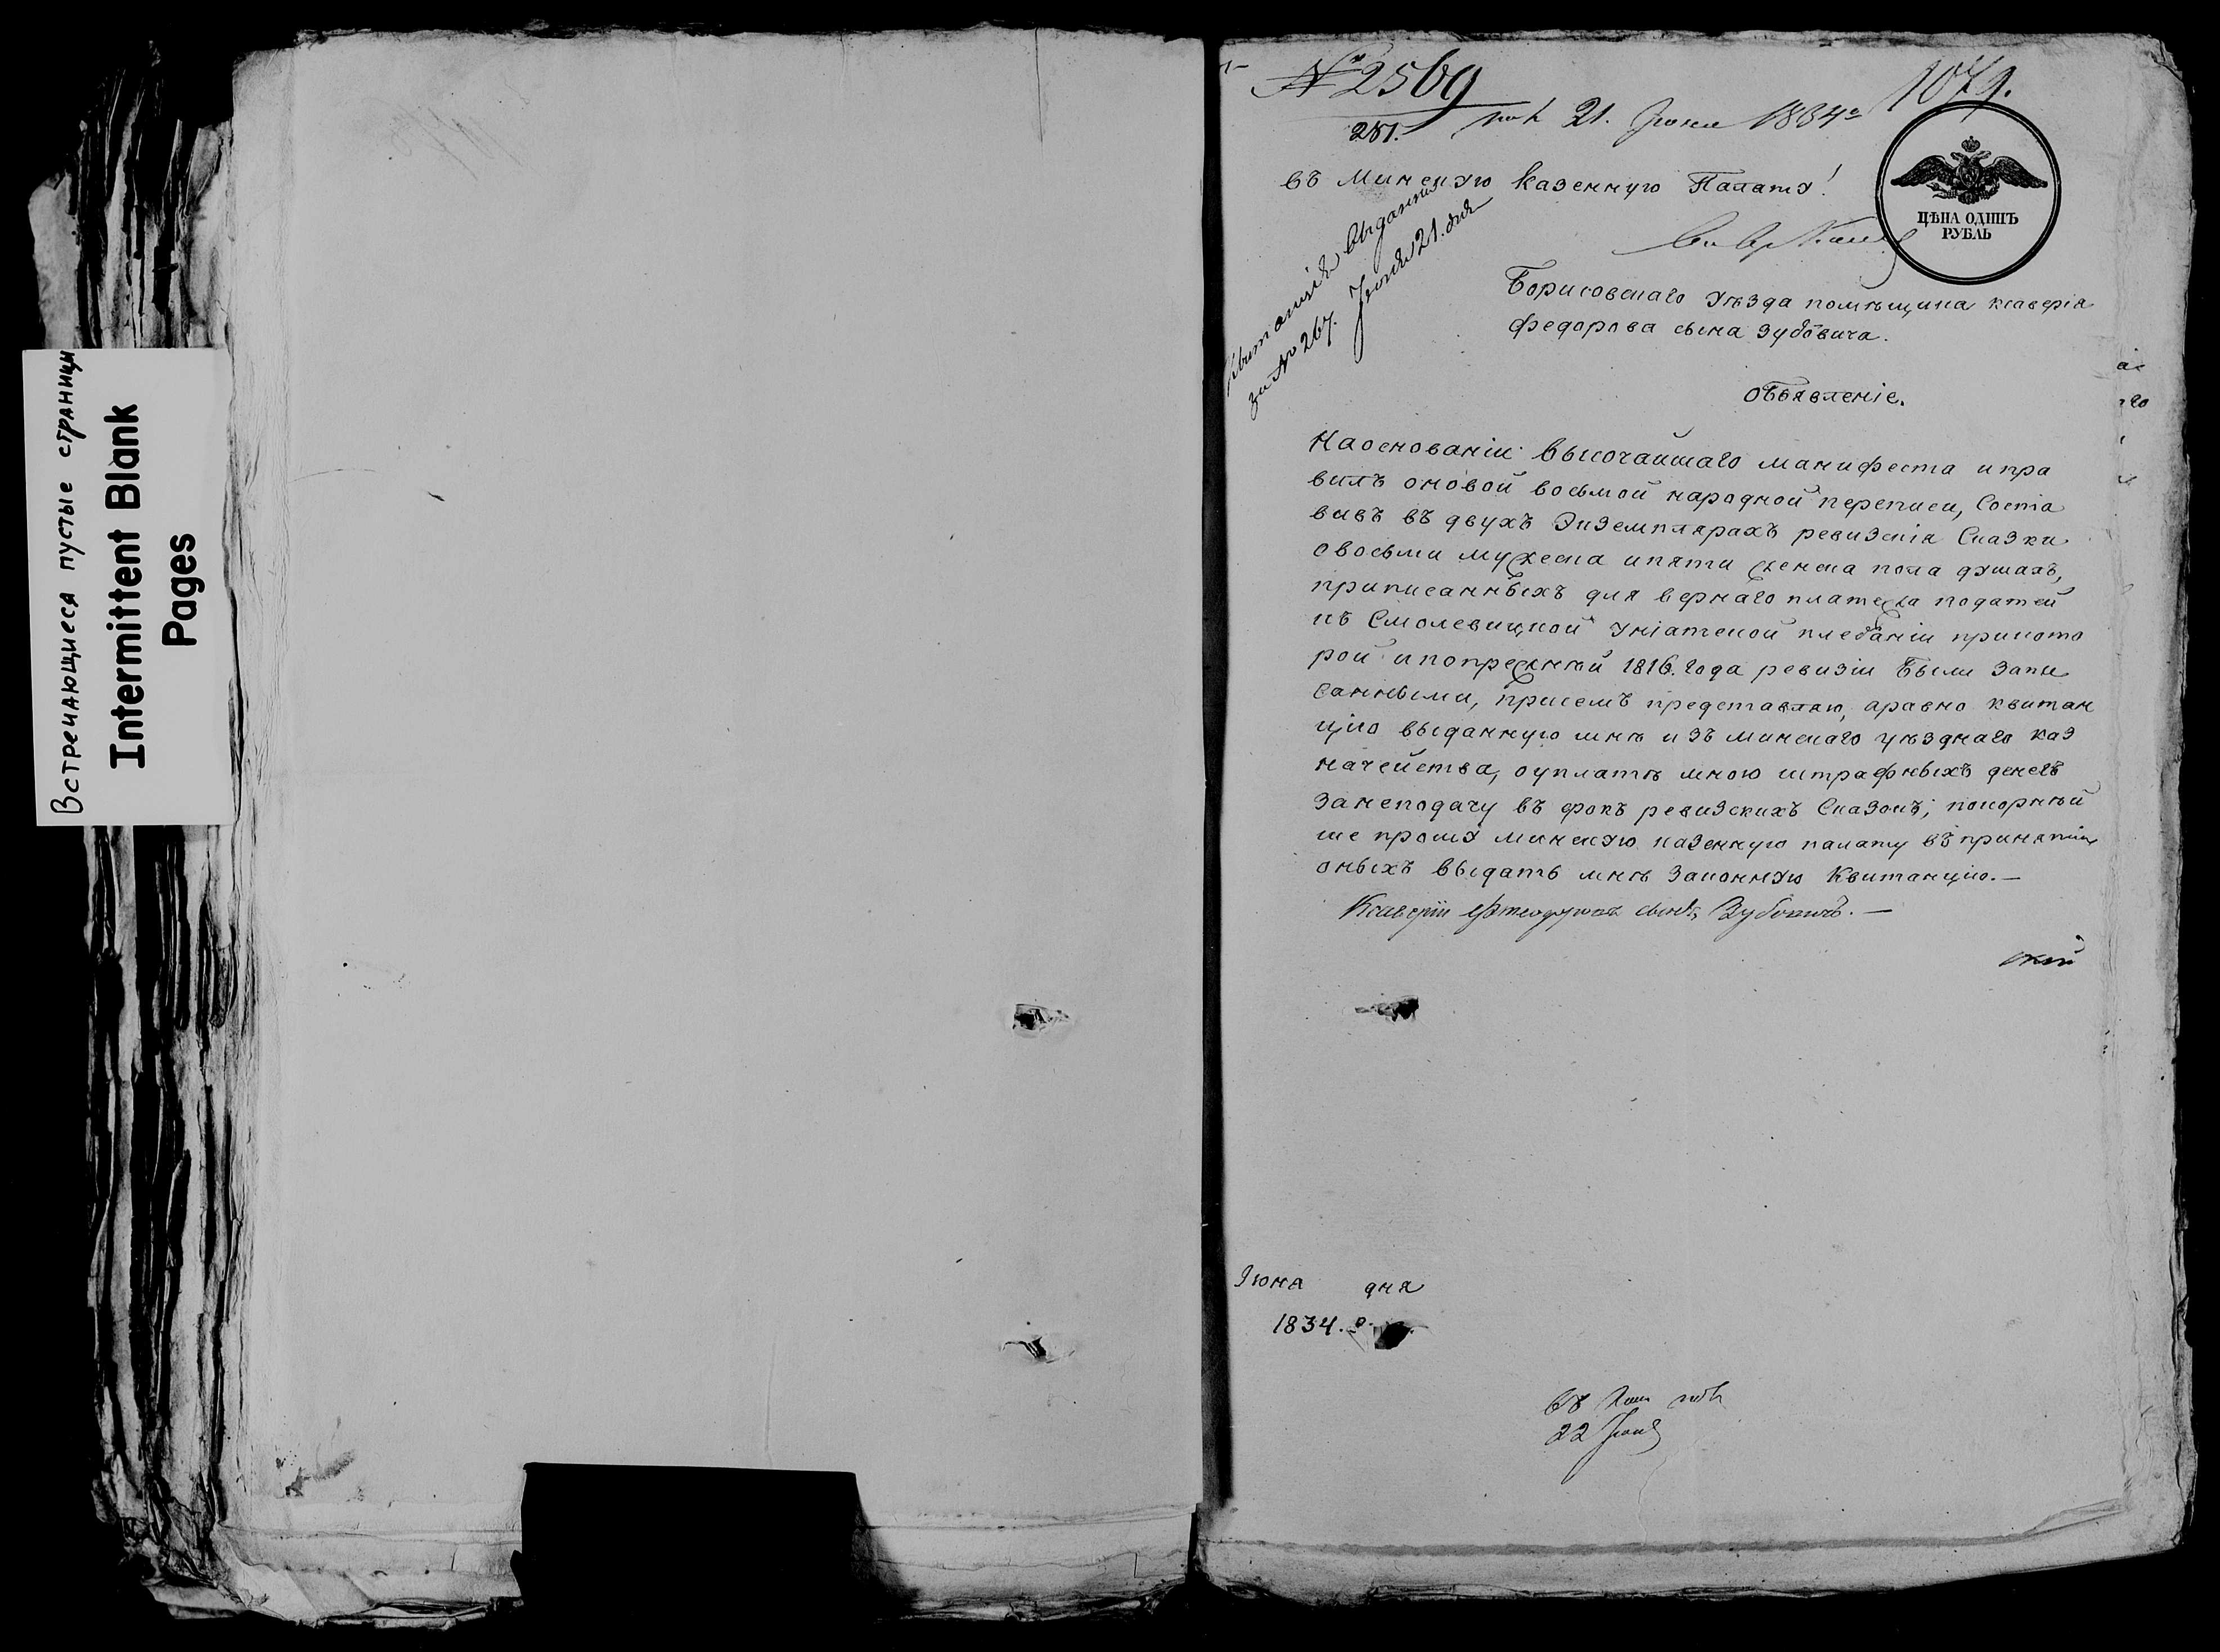 Встречающиеся пустые страницы
Intermittent Blank
Pages
№ 2569
281.
21. Іюня 1834го
1079.
ЦѢНА ОДИНЪ
РУБЛЬ
въ Минскую Казенную Палату!
Квитанція выданна
за № 267. Іюня 21. дня
Борисовскаго уѣзда помѣщика ксаверія
федорова сына Зубовича.
объявленіе.
На основаніи высочайшаго манифеста и пра
вилъ оновой восьмой народной переписи, Соста
вивъ въ двухъ Экземплярахъ ревизскія Сказки
о восьми мужеска и пяти женска пола душахъ,
приписанныхъ для вернаго платежа податей
къ Смолевицкой Уніатской плебаніи при кото
рой и по прежнѣй 1816. года ревизіи были запи
санными, при семъ представляю, а равно квитан
цію выданную мнѣ изъ минскаго уѣзднаго каз
начейства, о уплатѣ мною штрафныхъ денегъ
за неподачу въ срокъ ревизскихъ Сказокъ; покорнѣй
ше прошу минскую казенную палату въ принятіи
оныхъ выдать мнѣ законную Квитанцію.—
Ксаверій сынъ Зубовичъ.—
ской
Іюня дня
1834.го
22 Іюня